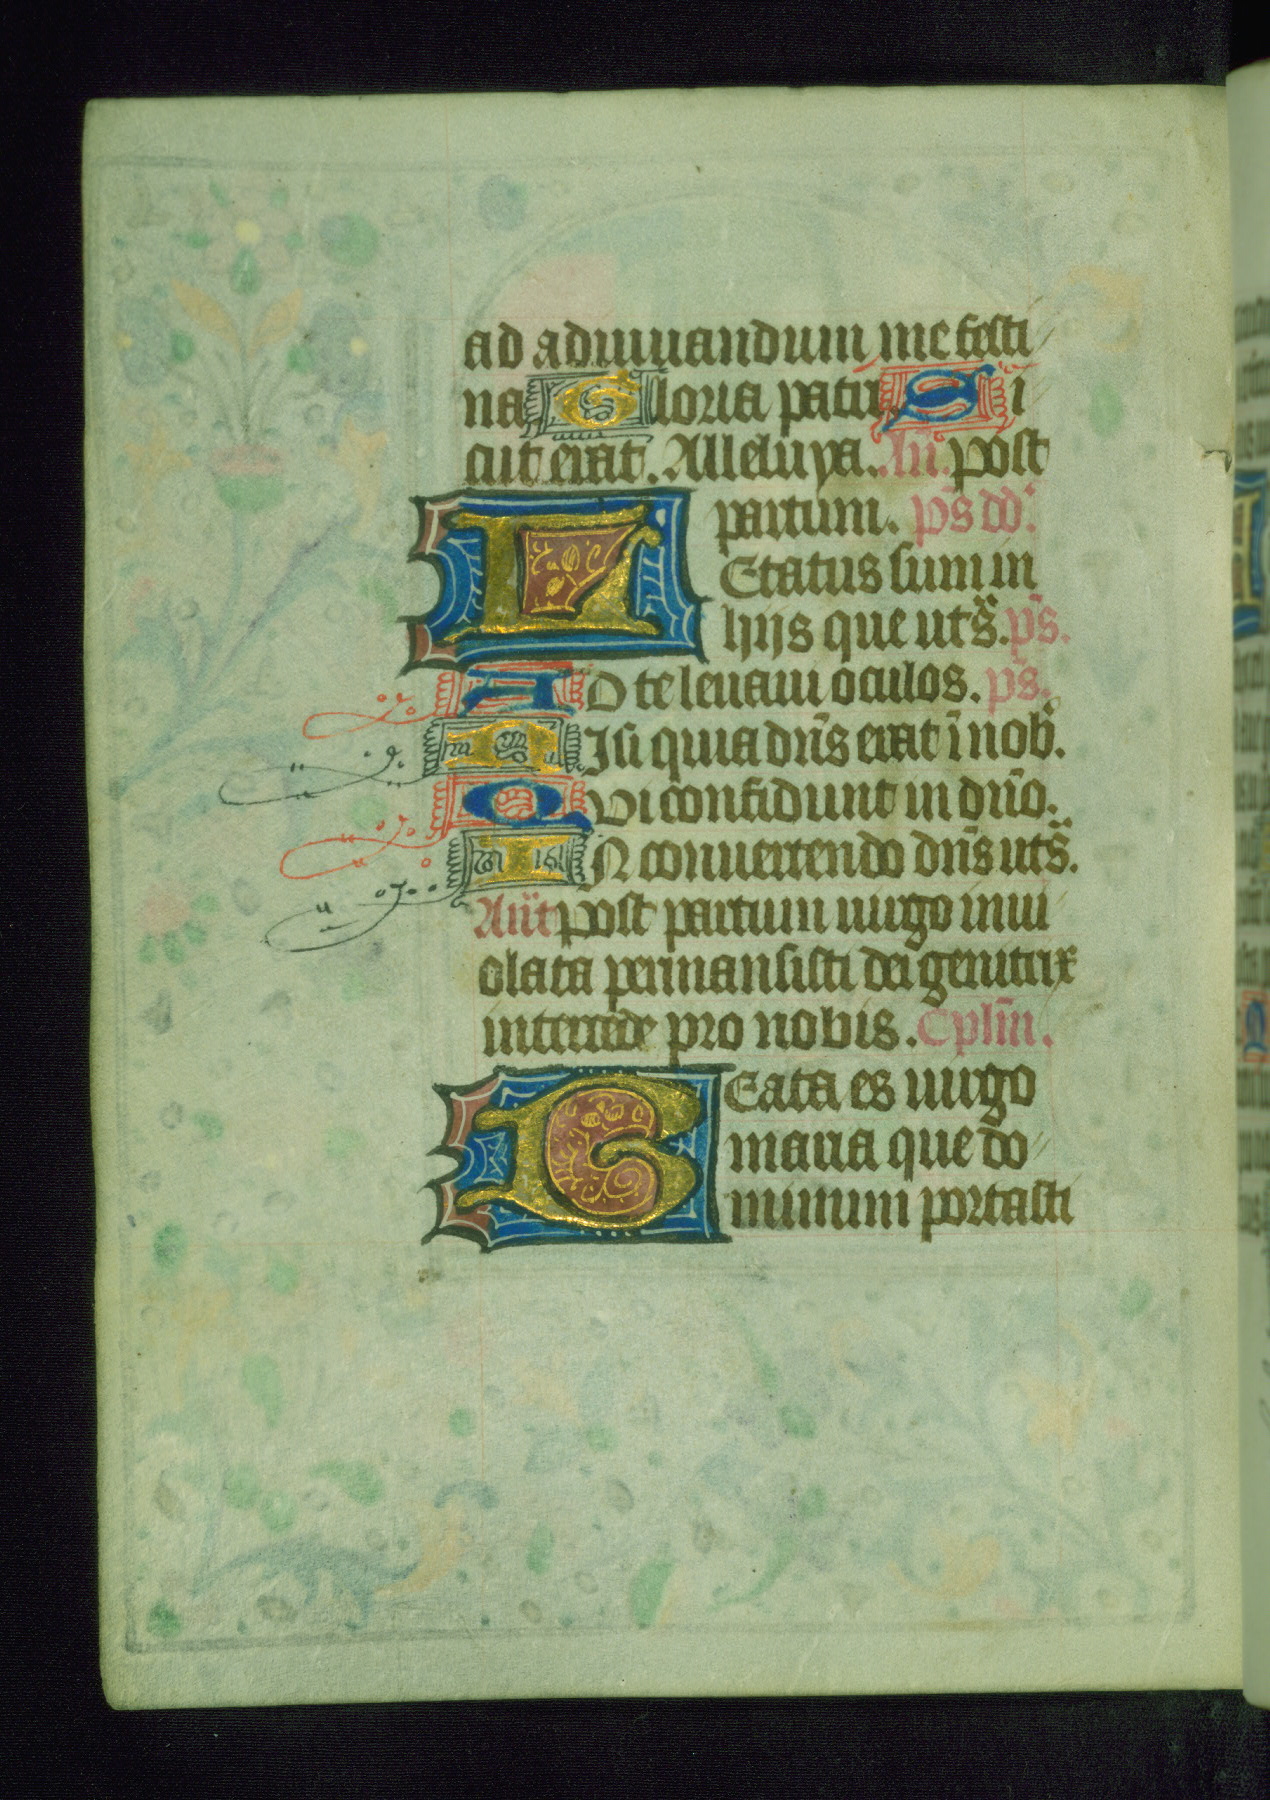 ad adiuuandum me festi
na Gloria patri. Si
cut erat. Alleluya. An̄. post
partum. ps̄ dd̄.
LEtatus sum in
hijs que uts̄. ps̄.
AD te leuaui oculos. ps̄.
NIsi quia dn̄s erat ī nob̄.
QUi confidunt in dn̄o.
IN conuertendo dn̄s uts̄.
Ant̄ post partum uirgo inui
olata permansisti dei genitrix
intercede pro nobis. Cplīn.
BEata es uirgo
maria que do
minum portasti